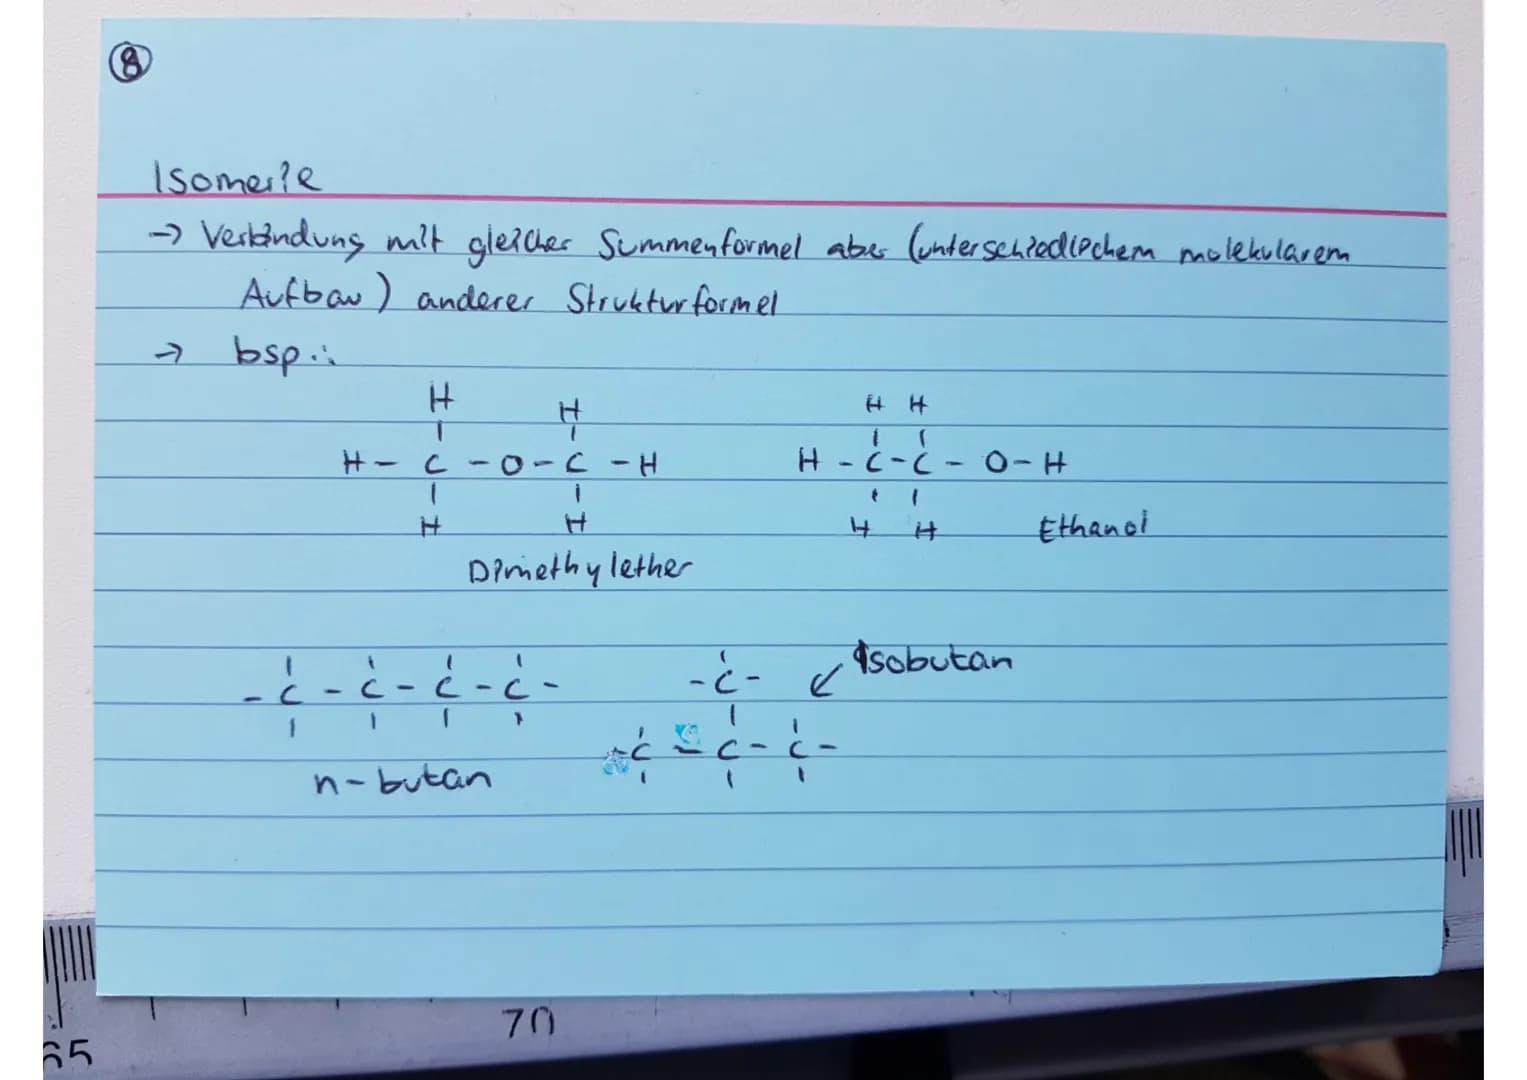 8
Isomerie
→ Verbindung mit gleicher Summenformel aber (unterschiedlichem molekularem
Aufbau) anderer Strukturformel
→ bsp.:
H H H H
| | | |
H - C - O - C - H H - C - C - O - H
| | | |
H H H H Ethanol
Dimethylether
| | | | | Isobutan
- C - C - C - C - - C - ↙
| | | | | | |
- C - C - C -
n-butan | | |
70
65